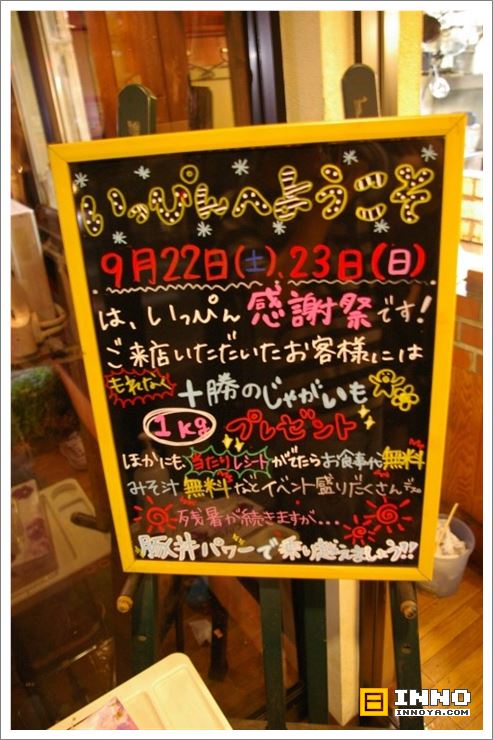 いっぴんへようこそ
9月22日(土)、23日(日)
は、いっぴん感謝祭です!
ご来店いただいたお客様には
もれなく 十勝のじゃがいも
1kg プレゼント
ほかにも、当たりレシートがでたらお食事代無料
みそ汁無料などイベント盛りだくさんデス。
残暑が続きますが...
豚丼パワーで乗り越えましょう!!
INNO
INNOYA.COM